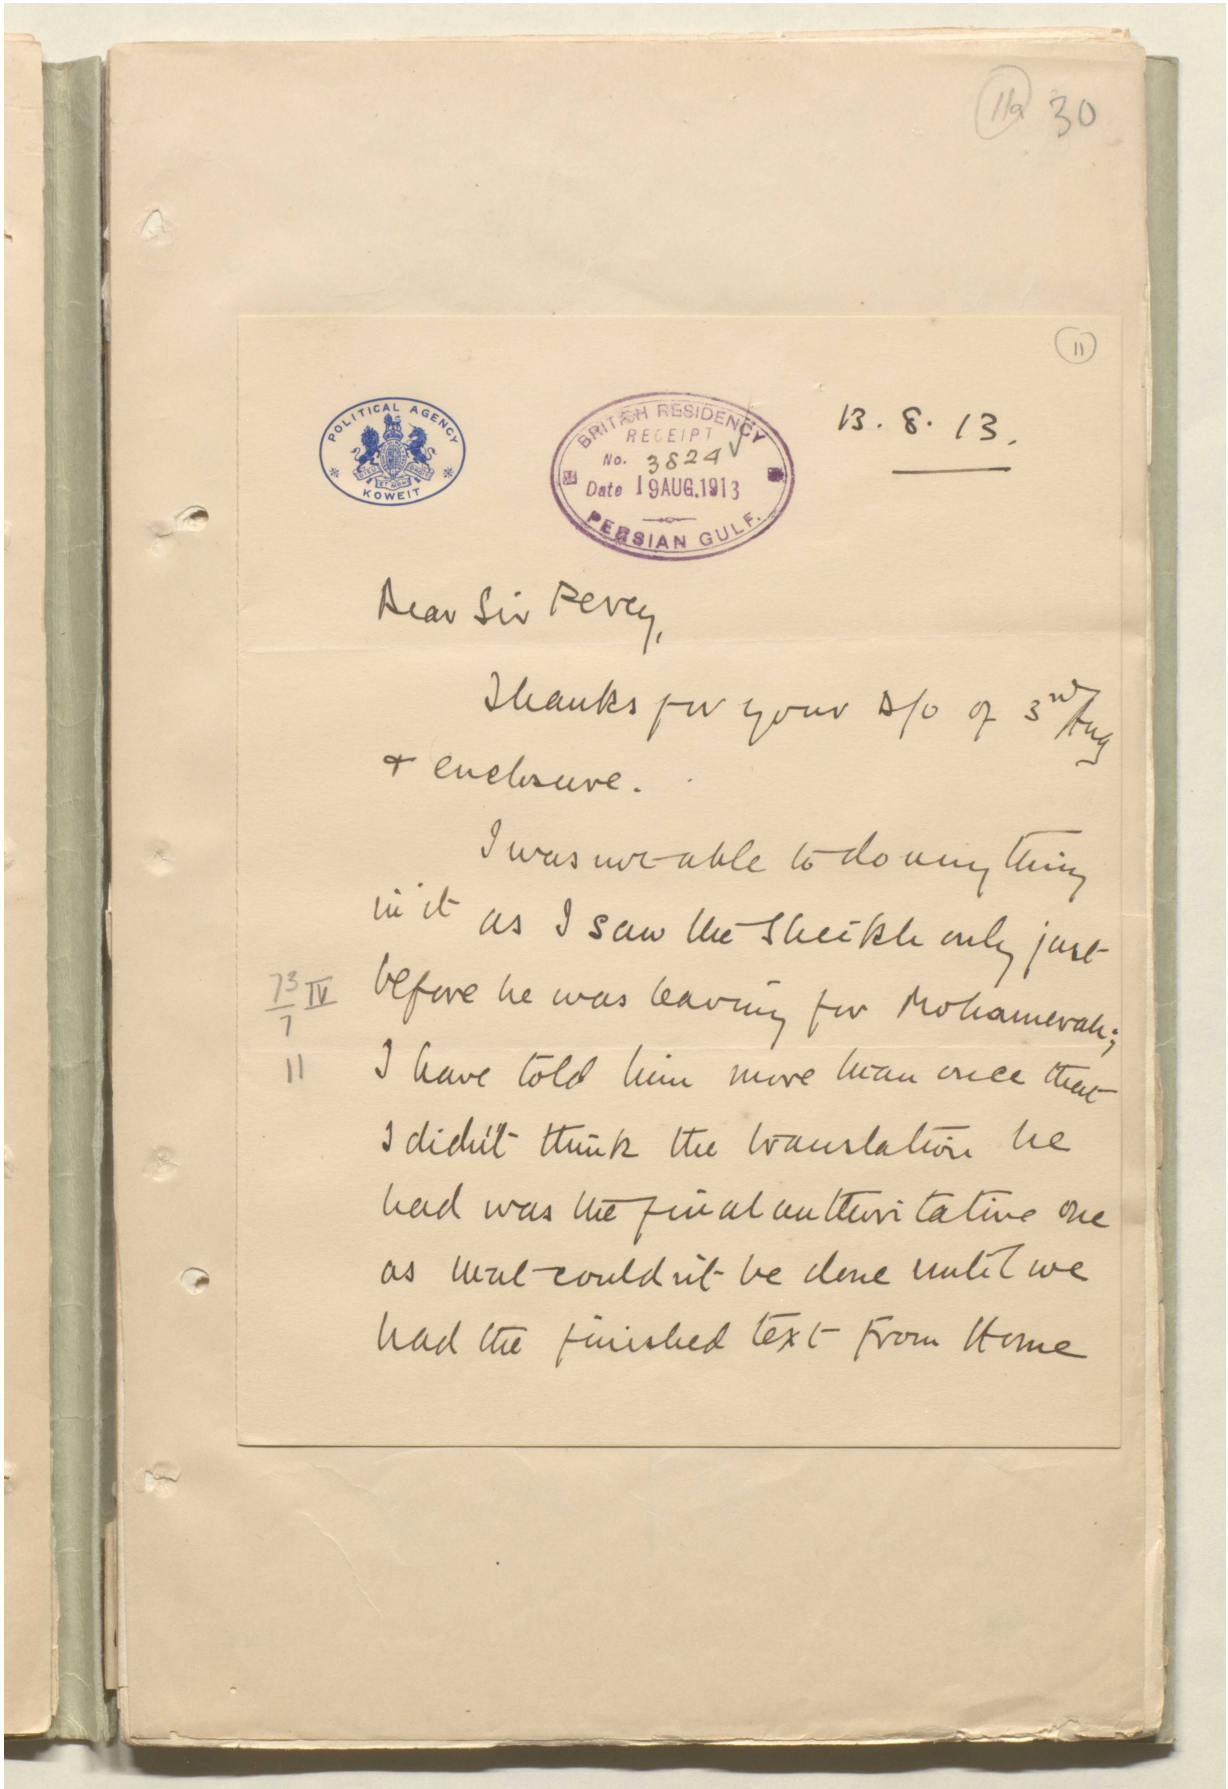 11a 30
11
POLITICAL AGENCY
KOWEIT
BRITISH RESIDENCY
RECEIPT
No. 3824
Date 19 AUG. 1913
PERSIAN GULF.
13. 8. 13.
Dear Sir Percy,
Thanks for your D/O of 3rd Aug
& enclosure.
I was not able to do anything
in it as I saw the Sheikh only just
before he was leaving for Mohamerah;
73/7 IV
11
I have told him more than once that
I didn't think the translation he
had was the final authoritative one
as that couldn't be done until we
had the finished text from Home